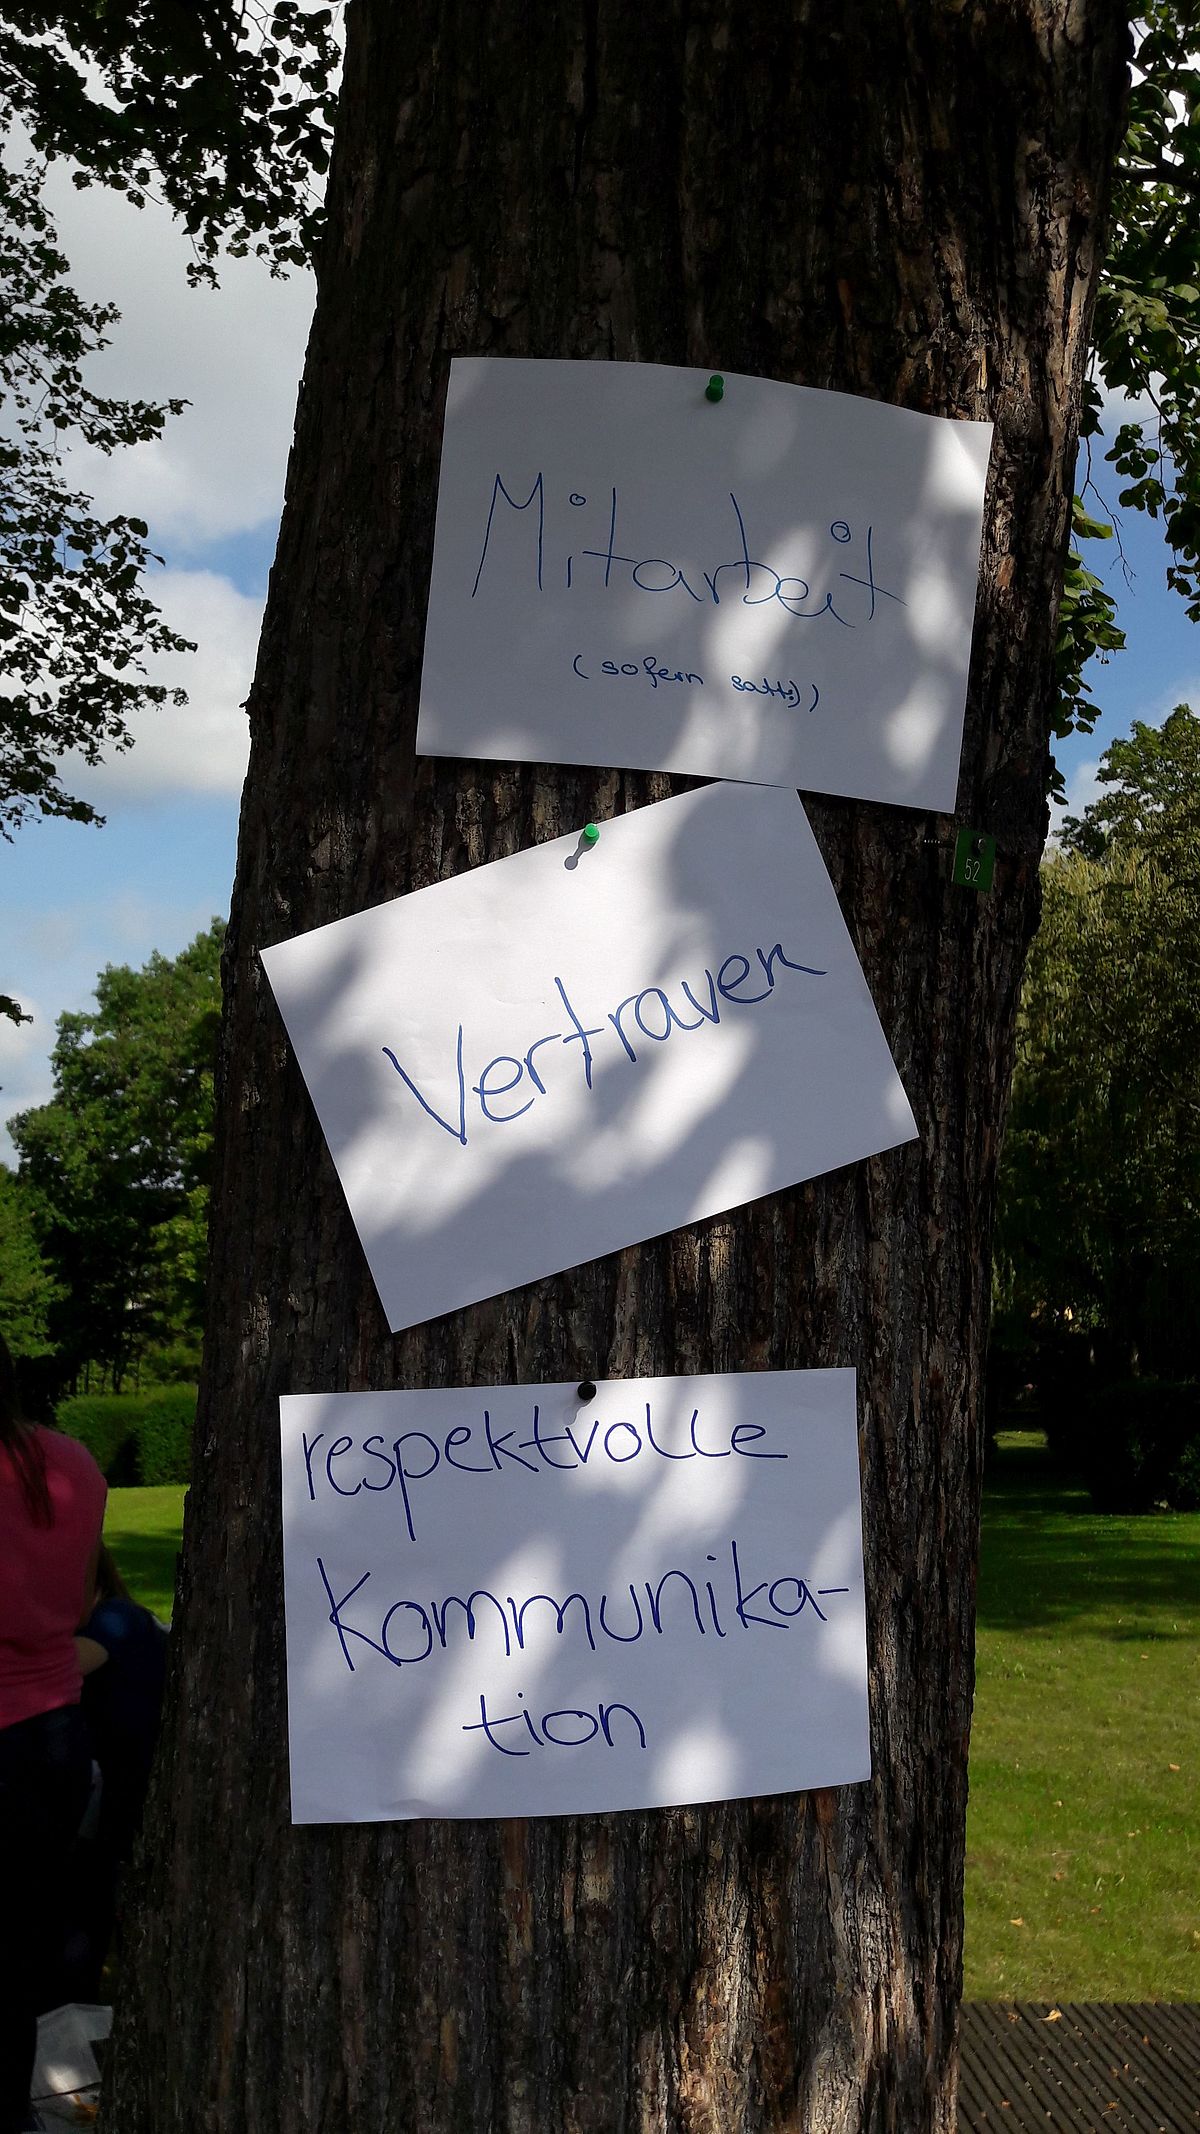 Mitarbeit
(sofern satt:))
52
Vertrauen
respektvolle
Kommunika-
tion